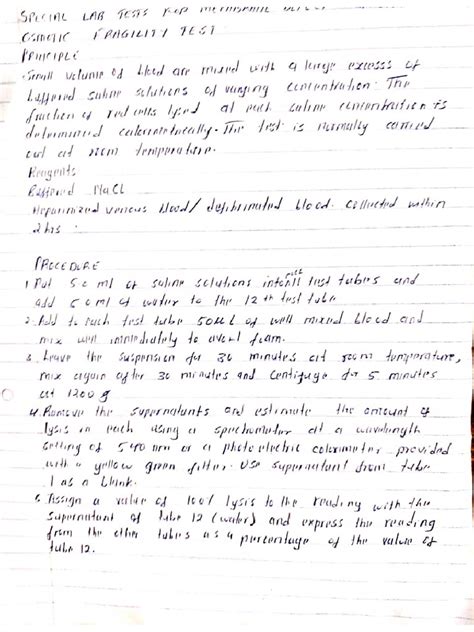 SPECIAL LAB TESTS FOR MEMBRANE DEFECT
OSMOTIC FRAGILITY TEST
PRINCIPLE
Small volume of blood are mixed with a large excesss of
buffered saline solutions of varying concentration. The
fraction of red cells lysed at each saline concentration is
determined calorimetrically. The test is normally carried
out at room temperature.
Reagents
Buffered NaCl
Heparinized venous blood / defibrinated blood. Collected within
2 hrs.
PROCEDURE
1. Put 5.0 ml of saline solutions into each test tubes and
add 5.0 ml of water to the 12th test tube
2. Add to each test tube 50 of well mixed blood and
mix well immediately to avoid foam.
3. Leave the suspension for 30 minutes at room temperature,
mix again after 30 minutes and Centifuge for 5 minutes
at 1200 g
4. Remove the supernatants and estimate the amount of
lysis in each using a spectrometer at a wavelength
setting of 540 nm or a photoelectric colorimeter provided
with a yellow green filter. Use supernatant from tube
1 as a blank.
5. Assign a value of 100% lysis to the reading with the
supernatant of tube 12 (water) and express the reading
from the other tubes as a percentage of the value of
tube 12.